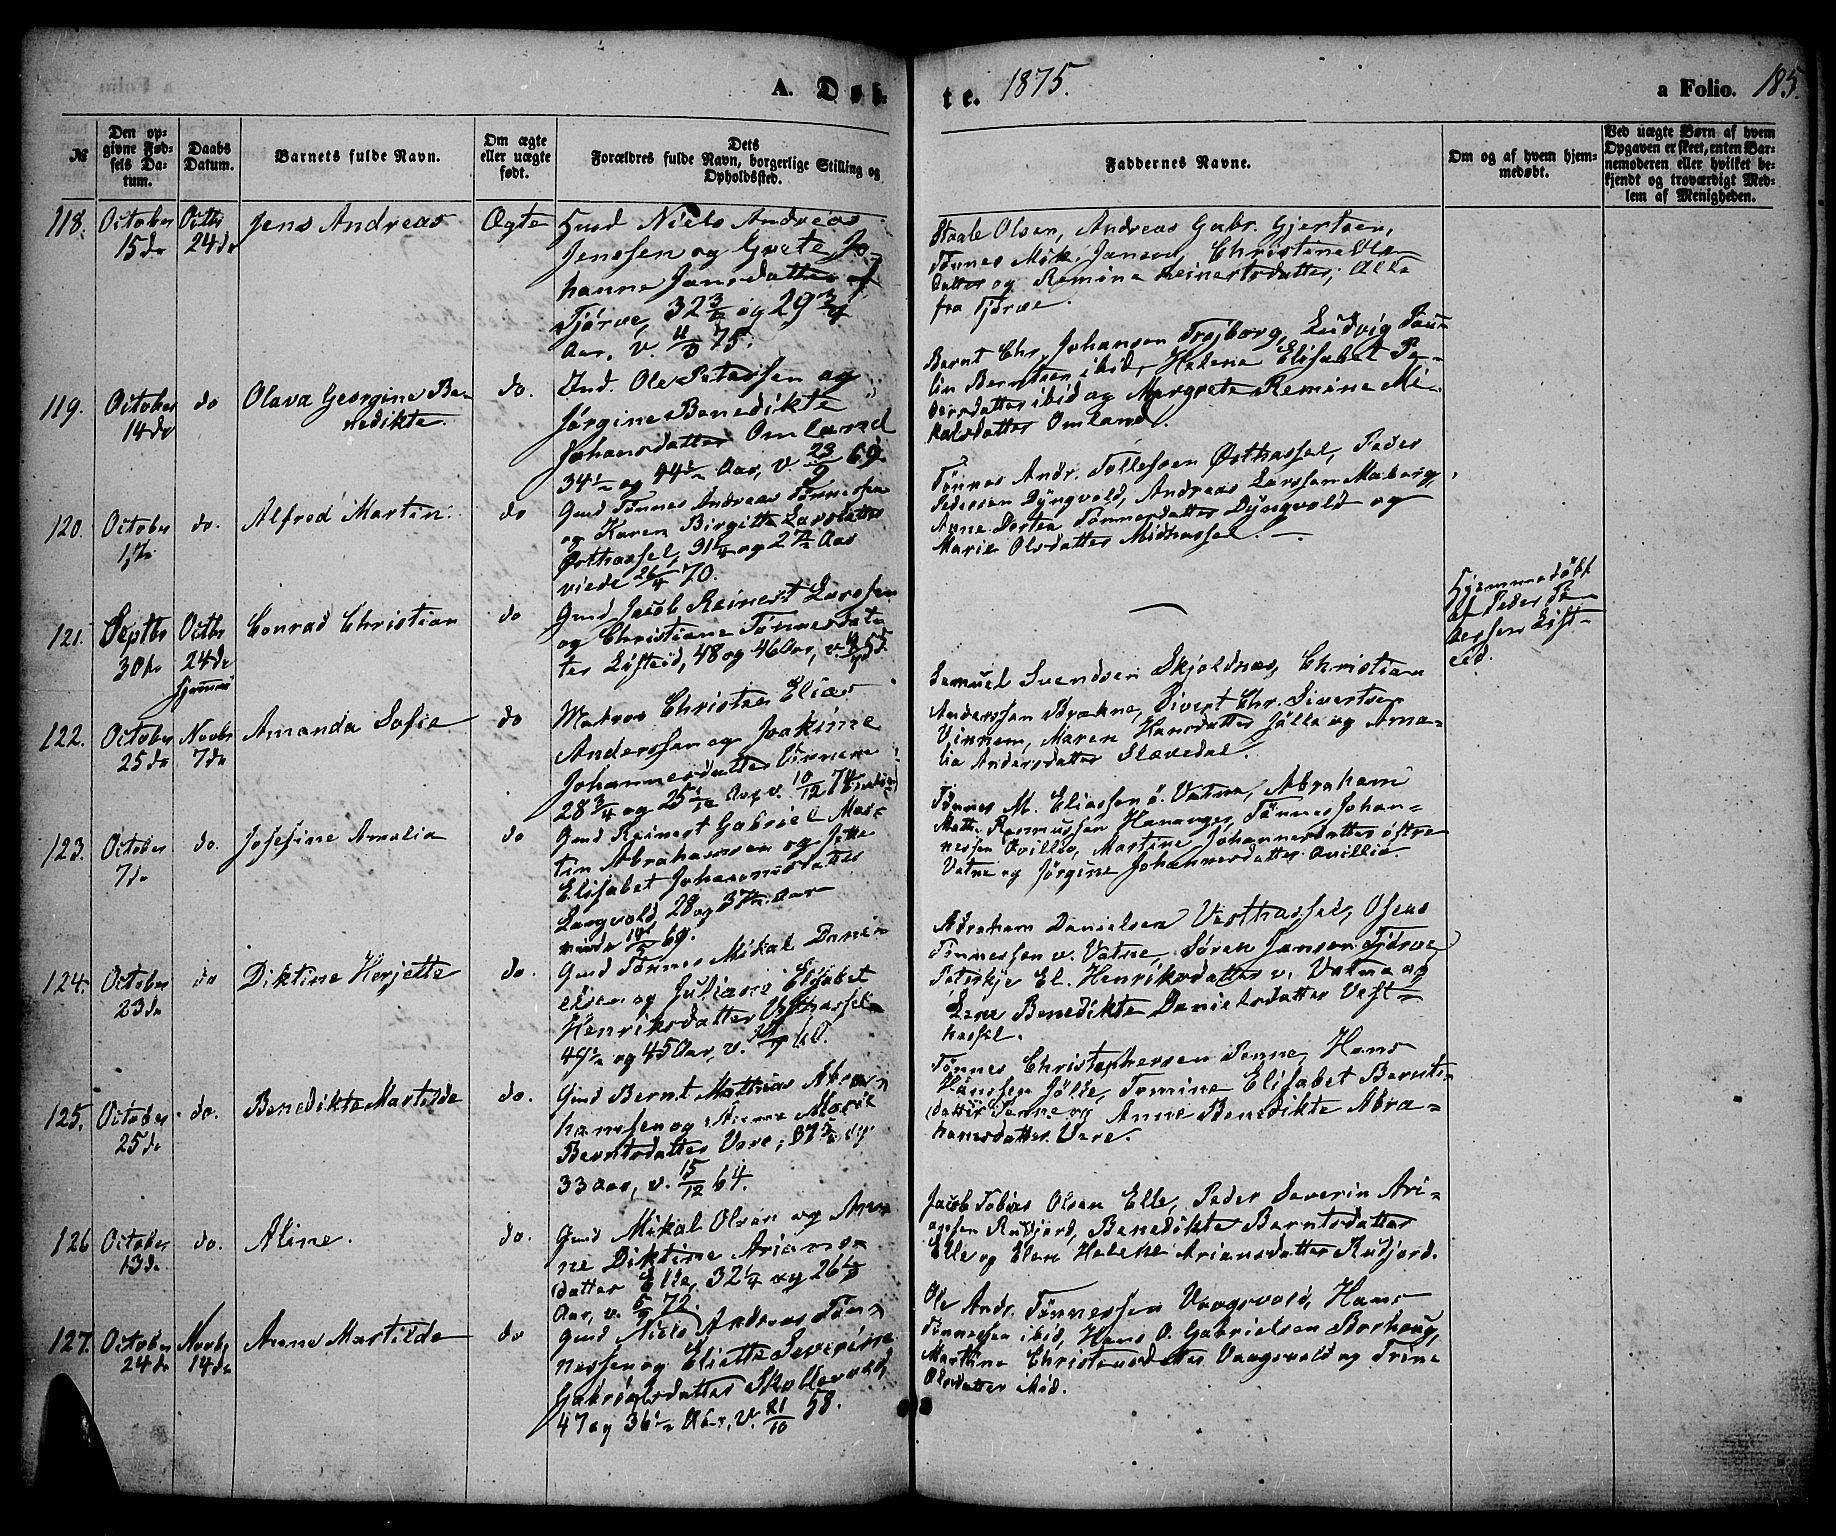 A. Døb-
te. 1875.
a Folio. 185.
№
Den op-
givne Fød-
sels Da-
tum.
Daabs
Datum.
Barnets fulde Navn.
Om ægte
eller uægte
født.
Dets
Forældres fulde Navn, borgerlige Stilling og
Opholdssted.
Faddernes Navne.
Om og af hvem hjem-
medøbt.
Ved uægte Børn af hvem
Opgaven er skeet, enten Bar-
nemoderen eller hvilket be-
kjendt og troværdigt Med-
lem af Menigheden.
118. October 15de
Octbr 24de
Jens Andreas
Ægte
Niels Andreas
Jenssen og Grete Jo-
hanne Jansdatter af
Tjørve, 32 3/4 og 29 3/4
Aar, v. 75.
Staale Olsen, Andreas Gabr. Gjertsen,
Tønnes Mik. Jansen, Christine
datter og Remine Reinertsdatter, Alle
fra Tjørve.
119. October 14de
do
Olava Georgine Be-
nedikte.
do.
Ind. Ole Peterssen og
Jørgine Benedikte
Johansdatter Omland
34 1/2 og 44 1/2 Aar, v. 23/9 69.
Bernt Chr. Johansen Trojborg, Ludvig Pau-
lin Berntsen ibid, Helene Elisabet Pe-
dersdatter ibid og Margrete Remine Mi-
kalsdatter Omland.
120. October
do.
Alfred Martin.
do
Gmd Tønnes Andreas Tønnessen
og Karen Birgitte Larsdatter
Østhassel, 31 1/4 og 27 1/2 Aar
viede 26/4 70.
Tønnes Andr. Tollefsen Østhassel, Peder
Pedersen Dyngvold, Andreas Larssen Maberg,
Anne Dortea Tønnesdatter Dyngvold og
Marie Olsdatter Midthassel. —
121. Septbr 30te
Octbr 24de
hjemme
Conrad Christian
do
Gmd Jacob Reinert Larssen
og Christiane Tønnesdat-
ter Listeid, 48 og 46 Aar, v. 55.
—
Hjemmedøbt
af Peder Pe-
derssen List-
eid.
122. October 25de
Novbr 7de
Amanda Sofie
do
Matros Christen Elias
Anderssen og Joakime
Johannesdatter Vinnem
28 3/4 og 25 1/12 Aar, v. 10/12 74
Samuel Svendsen Skjoldnæs, Christian
Anderssen Brækne, Sivert Chr. Sivertsen
Vinnem, Maren Hansdatter Jølle og Ama-
lia Andersdatter Slevedal.
123. October 7de
do.
Josefine Amalia
do
Gmd Reinert Gabriel Mar-
tin Abrahamsen og
Elisabet Johannesdatter
Langvold, 28 og 37 1/2 Aar
viede 69.
Tønnes M. Eliassen ø. Vatne, Abraham
Math. Rasmussen Hananger, Tønnes Johan-
nessen Qvillio, Martine Johannesdatter østre
Vatne og Jørgine Johannesdatter Qvillio.
124. October 23de
do
Diktine Herjette
do.
Gmd Tønnes Mikal Dani-
elsen og Juliane Elisabet
Henriksdatter Vesthassel
49 1/2 og 45 Aar, v. 60.
Abraham Danielsen Vesthassel, Oseas
Tønnessen v. Vatne, Søren Jansen Tjørve,
El. Henriksdatter v. Vatne og
Lene Benedikte Danielsdatter Vest-
hassel.
125. October 25de
do.
Benedikte Martilde
do.
Gmd Bernt Mathias Abra-
hamsen og Anne Marie
Berntsdatter Vere, 37 og
33 Aar, v. 15/12 64.
Tønnes Christophersen Penne, Hans
Hanssen Jølle, Tomine Elisabet Bernts-
datter Penne og Anne Benedikte Abra-
hamsdatter Vere.
126 October 13de
do.
Aline.
do.
Gmd Mikal Olsen og An-
ne Diktine Arians-
datter Elle, 32 1/4 og 26
Aar, v. 72.
Jacob Tobias Olsen Elle, Peder Severin Ari-
ansen Rudjord, Benedikte Berntsdatter
Elle og Elen Helene Ariansdatter Rudjord.
127. October 24de
Novbr 14de
Anne Martilde
do
Gmd Niels Andreas Tøn-
nessen og Eliette Severine
Gabrielsdatter Skollevold,
47 og 36 1/2 Aar, v. 21/10 58.
Ole Andr. Tønnessen Vaagsvold, Hans
Tønnessen ibid, Hans O. Gabrielsen Borhoug,
Martine Christensdatter Vaagsvold og Trine
Olsdatter ibid.